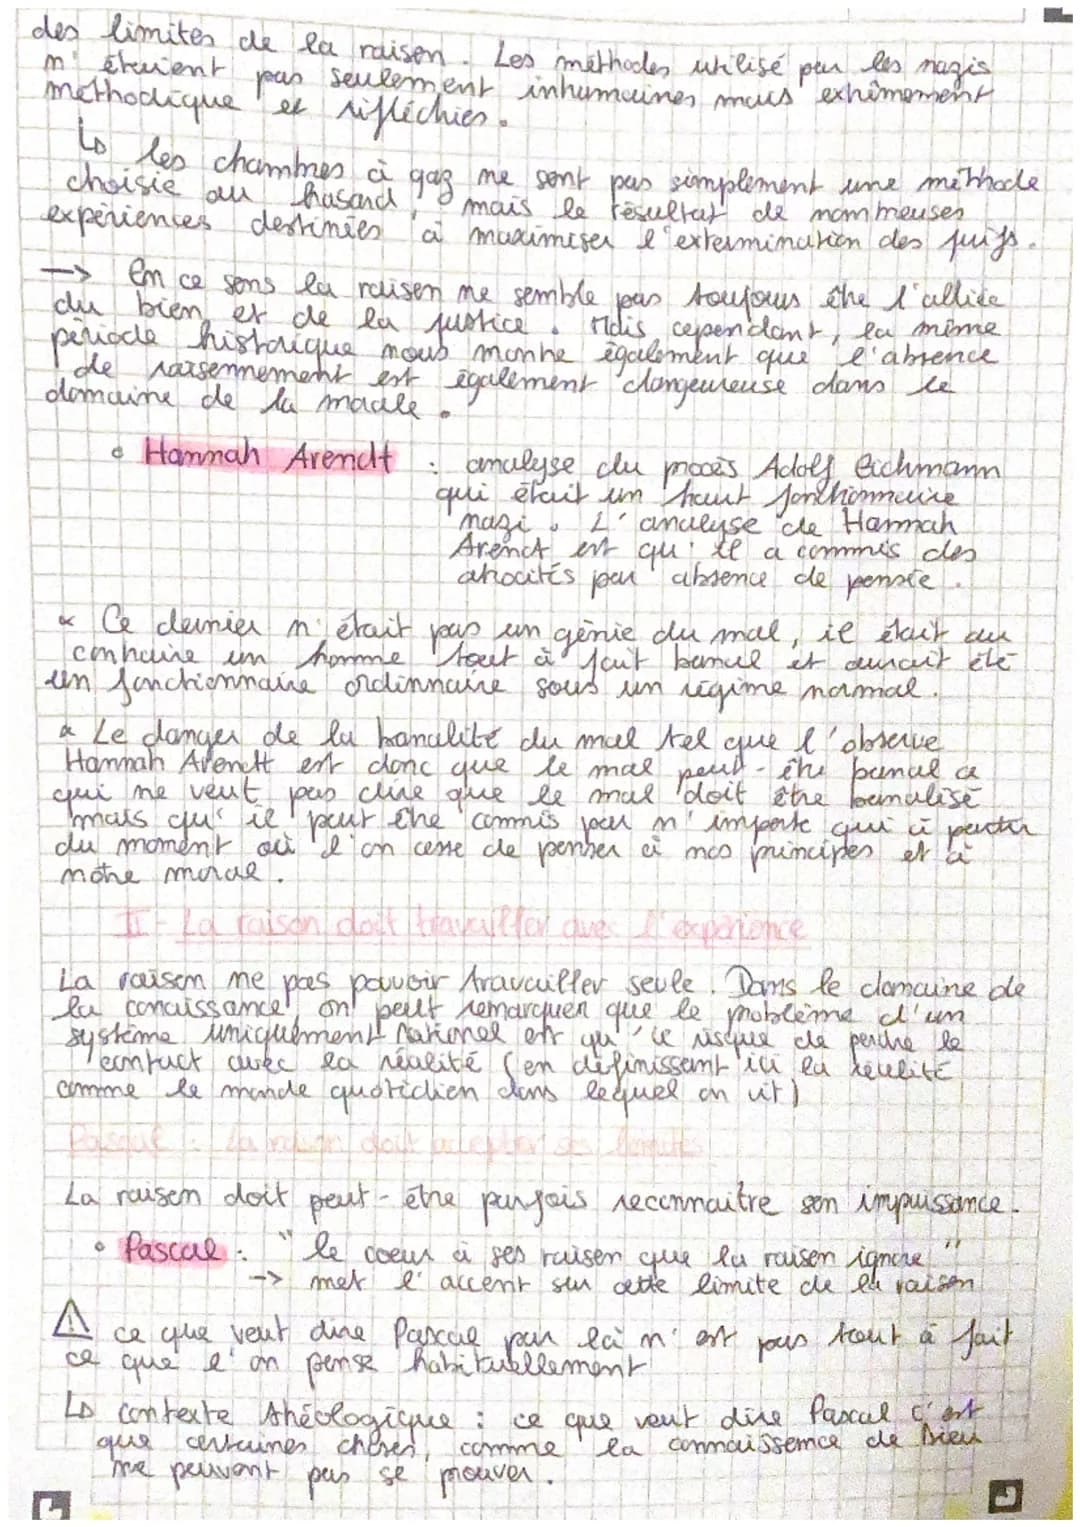 des limites de la raison. Les méthodes utilisé par les nazis
n'étaient pas seulement inhumaines mais extrêmement
méthodique et réfléchies.
↳ les chambres à gaz ne sont pas simplement une méthode
choisie au hasard, mais le résultat de nombreuses
expériences destinées à maximiser l'extermination des juifs.
--> En ce sens la raison ne semble pas toujours être l'alliée
du bien et de la justice. Mais cependant, la même
période historique nous montre également que l'absence
de raisonnement est également dangeureuse dans le
domaine de la morale.
• Hannah Arendt : analyse du procès Adolf Eichmann
qui était un haut fonctionnaire
nazi. L'analyse de Hannah
Arendt est qu'il a commis des
atrocités par absence de pensée.
* Ce dernier n'était pas un génie du mal, il était au
contraire un homme tout à fait banal et aurait été
un fonctionnaire ordinnaire sous un régime normal.
* Le danger de la banalité du mal tel que l'observe
Hannah Arendt est donc que le mal peut-être banal ce
qui ne veut pas dire que le mal doit être banalisé
mais qu'il peut être commis par n'importe qui à partir
du moment où l'on cesse de penser à nos principes et à
notre morale.
II - La raison doit travailler avec l'expérience
La raison ne pas pouvoir travailler seule. Dans le domaine de
la conaissance, on peut remarquer que le problème d'un
système uniquement rationel est qu'il risque de perdre le
contact avec la réalité (en définissant ici la réalité
comme le monde quotidien dans lequel on vit)
Pascal : La raison doit accepter ses limites
La raison doit peut-être parfois reconnaitre son impuissance.
• Pascal : "le coeur à ses raison que la raison ignore"
--> met l'accent sur cette limite de la raison
⚠ ce que veut dire Pascal par là n'est pas tout à fait
ce que l'on pense habituellement
↳ contexte théologique : ce que veut dire Pascal c'est
que certaines choses, comme la connaissance de Dieu
ne peuvent pas se prouver.